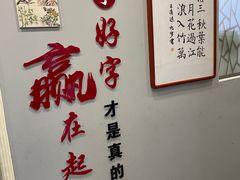 赢在起
好字
才是真的
三秋葉能
月花過江
浪入竹萬